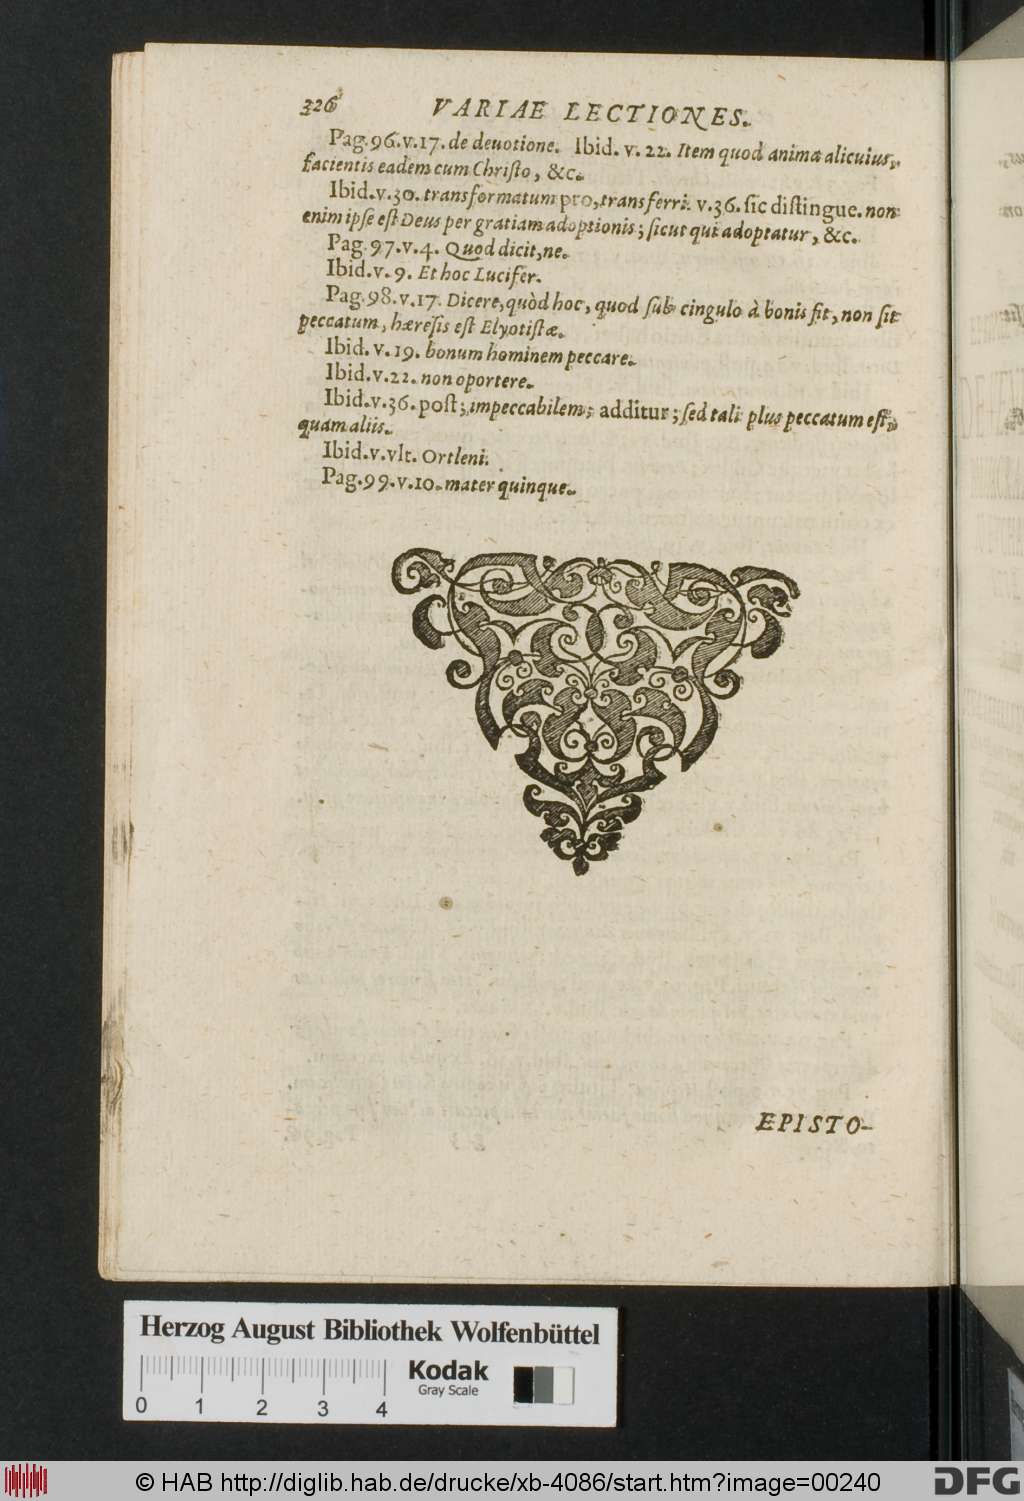 326 VARIAE LECTIONES.
Pag. 96. v. 17. de deuotione. Ibid. v. 22. Item quod anima alicuius,
facientis eadem cum Christo, &c.
Ibid. v. 30. transformatum pro, transferri. v. 36. sic distingue. non
enim ipse est Deus per gratiam adoptionis; sicut qui adoptatur, &c.
Pag. 97. v. 4. Quod dicit, ne.
Ibid. v. 9. Et hoc Lucifer.
Pag. 98. v. 17. Dicere, quòd hoc, quod sub cingulo à bonis fit, non sit
peccatum, hæresis est Elyotistæ.
Ibid. v. 19. bonum hominem peccare.
Ibid. v. 22. non oportere.
Ibid. v. 36. post; impeccabilem; additur; sed tali plus peccatum est,
quam aliis.
Ibid. v. vlt. Ortleni.
Pag. 99. v. 10. mater quinque.
EPISTO-
Herzog August Bibliothek Wolfenbüttel
Kodak
Gray Scale
0 1 2 3 4
© HAB http://diglib.hab.de/drucke/xb-4086/start.htm?image=00240
DFG